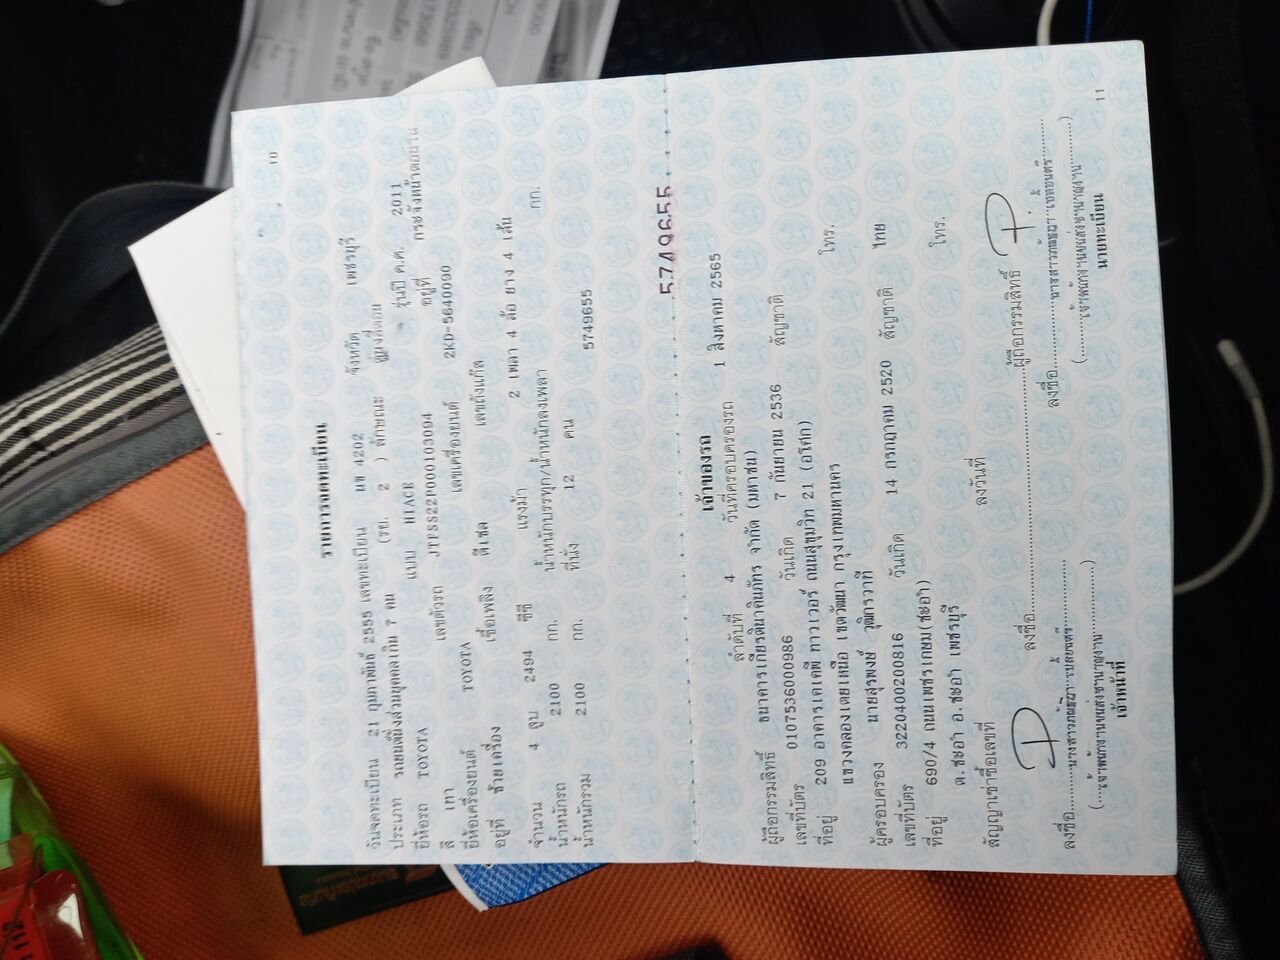 10
รายการจดทะเบียน
วันจดทะเบียน 21 กุมภาพันธ์ 2555 เลขทะเบียน นข 4202 จังหวัด เพชรบุรี
ประเภท รถยนต์นั่งส่วนบุคคลเกิน 7 คน (รย. 2 ) ลักษณะ ตู้นั่งสี่ตอน
ยี่ห้อรถ TOYOTA แบบ HIACE รุ่นปี ค.ศ. 2011
สี เทา เลขตัวรถ JTFSS22P000103094 อยู่ที่ กระจังหน้าตอนใน
ยี่ห้อเครื่องยนต์ TOYOTA เลขเครื่องยนต์ 2KD-5640090
อยู่ที่ ซ้ายเครื่อง เชื้อเพลิง ดีเซล เลขถังแก๊ส
จำนวน 4 สูบ 2494 ซีซี แรงม้า 2 เพลา 4 ล้อ ยาง 4 เส้น
น้ำหนักรถ 2100 กก. น้ำหนักบรรทุก/น้ำหนักลงเพลา กก.
น้ำหนักรวม 2100 กก. ที่นั่ง 12 คน 5749655
5749655
เจ้าของรถ
ลำดับที่ 4 วันที่ครอบครองรถ 1 สิงหาคม 2565
ผู้ถือกรรมสิทธิ์ ธนาคารเกียรตินาคินภัทร จำกัด (มหาชน)
เลขที่บัตร 0107536000986 วันเกิด 7 กันยายน 2536 สัญชาติ
ที่อยู่ 209 อาคารเคเคพี ทาวเวอร์ ถนนสุขุมวิท 21 (อโศก)
แขวงคลองเตยเหนือ เขตวัฒนา กรุงเทพมหานคร โทร.
ผู้ครอบครอง นายสุรพงษ์ วุฒิารวาที
เลขที่บัตร 3220400200816 วันเกิด 14 กรกฎาคม 2520 สัญชาติ ไทย
ที่อยู่ 690/4 ถนนเพชรเกษม(ชะอำ)
ต.ชะอำ อ.ชะอำ เพชรบุรี โทร.
สัญญาเช่าซื้อเลขที่ ลงวันที่
ลงชื่อ ผู้ถือกรรมสิทธิ์
ลงชื่อ ลงชื่อ
(เจ้าพนักงานขนส่งชำนาญงาน) (เจ้าพนักงานขนส่งชำนาญงาน)
เจ้าหน้าที่ นายทะเบียน
11
112